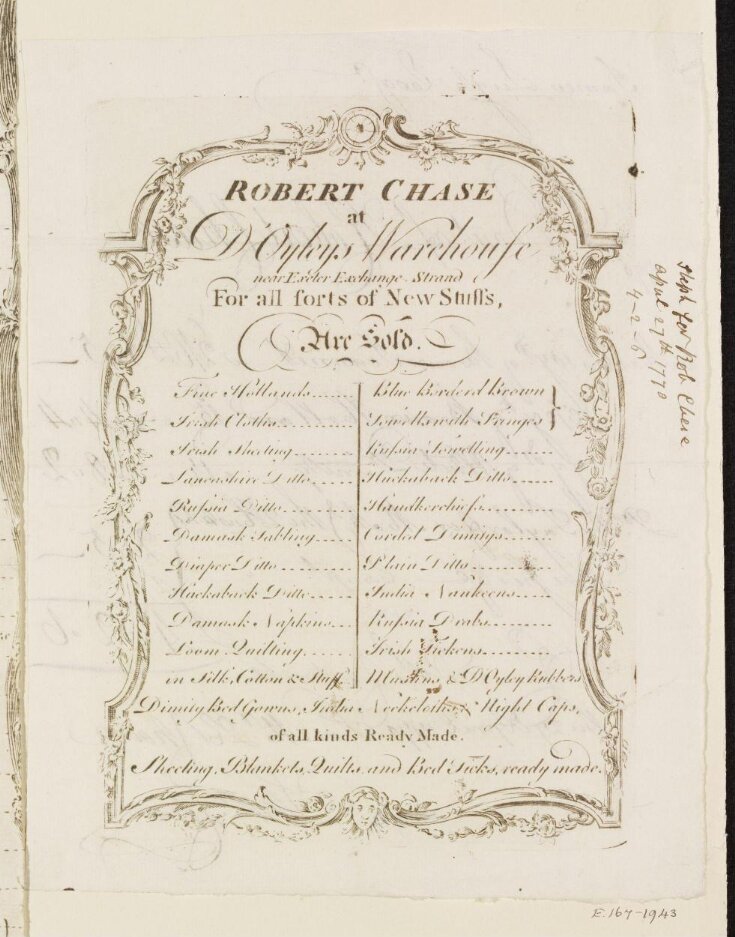 ROBERT CHASE
at
D'Oyleys Warehouſe
near Exeter Exchange Strand
For all ſorts of New Stuffs,
Are Sold.
Fine Hollands
Irish Cloths
Irish Sheeting
Lancashire Ditto
Ruſsia Ditto
Damask Tabling
Diaper Ditto
Huckaback Ditto
Damask Napkins
Loom Quilting
in Silk, Cotton & Stuff
Blue Borderd Brown
Towells with Fringes
Ruſsia Towelling
Huckaback Ditto
Handkerchiefs
Corded Dimitys
Plain Ditto
India Nankeens
Ruſsia Drabs
Irish Tickens
Muslins & D'Oyley Rubbers
Dimity Bed Gowns, India Neckcloths & Night Caps,
of all kinds Ready Made.
Sheeting, Blankets, Quilts, and Bed Ticks, ready made.
for Rob Chase
April 27th 1770
E.167-1943